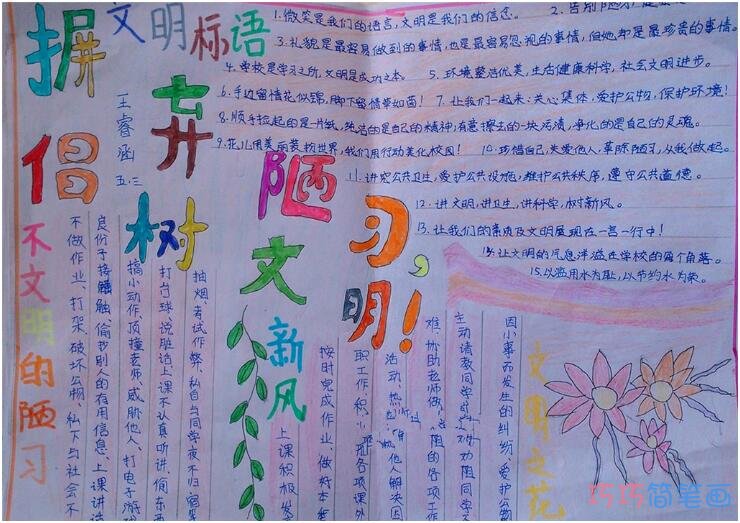 文明标语
摒弃陋习，
倡树文明！
新风
王睿涵
五.三
1.微笑是我们的语言,文明是我们的信念。
2.告别陋习,
3.礼貌是最容易做到的事情,也是最容易忽视的事情,但她却是最珍贵的事情。
4.学校是学习之所,文明是成功之本。
5.环境整洁优美,生活健康科学,社会文明进步。
6.手边留情花似锦,脚下留情草如茵！
7.让我们一起来:关心集体,爱护公物,保护环境！
8.顺手捡起的是一片纸,纯洁的是自己的精神,有意擦去的一块污渍,净化的是自己的灵魂。
9.花儿用美丽装扮世界,我们用行动美化校园！
10.巧倡自己,关爱他人,革除陋习,从我做起。
11.讲究公共卫生,爱护公共设施,维护公共秩序,遵守公共道德。
12.讲文明,讲卫生,讲科学,树新风。
13.让我们的素质及文明展现在一言一行中！
14.让文明的气息洋溢在学校的每个角落。
15.以滥用水为耻,以节约水为荣。
不文明的陋习
抽烟、考试作弊、私自与同学夜不归宿
打台球、说脏话、上课不认真听讲、
搞小动作、顶撞老师、威胁他人、打电子游
良份子接触、偷抄别人的有用信息、上课讲
不做作业、打架、破坏公物、私下与社会不
文明之花
因小事而发生的纠纷、爱护公
主动请教同学
难、协助老师做
阻的各项工作
活动、热
他人解决困
职工作积
班各项课外
按时完成作业、做好本
上课积极发
巧巧简笔画